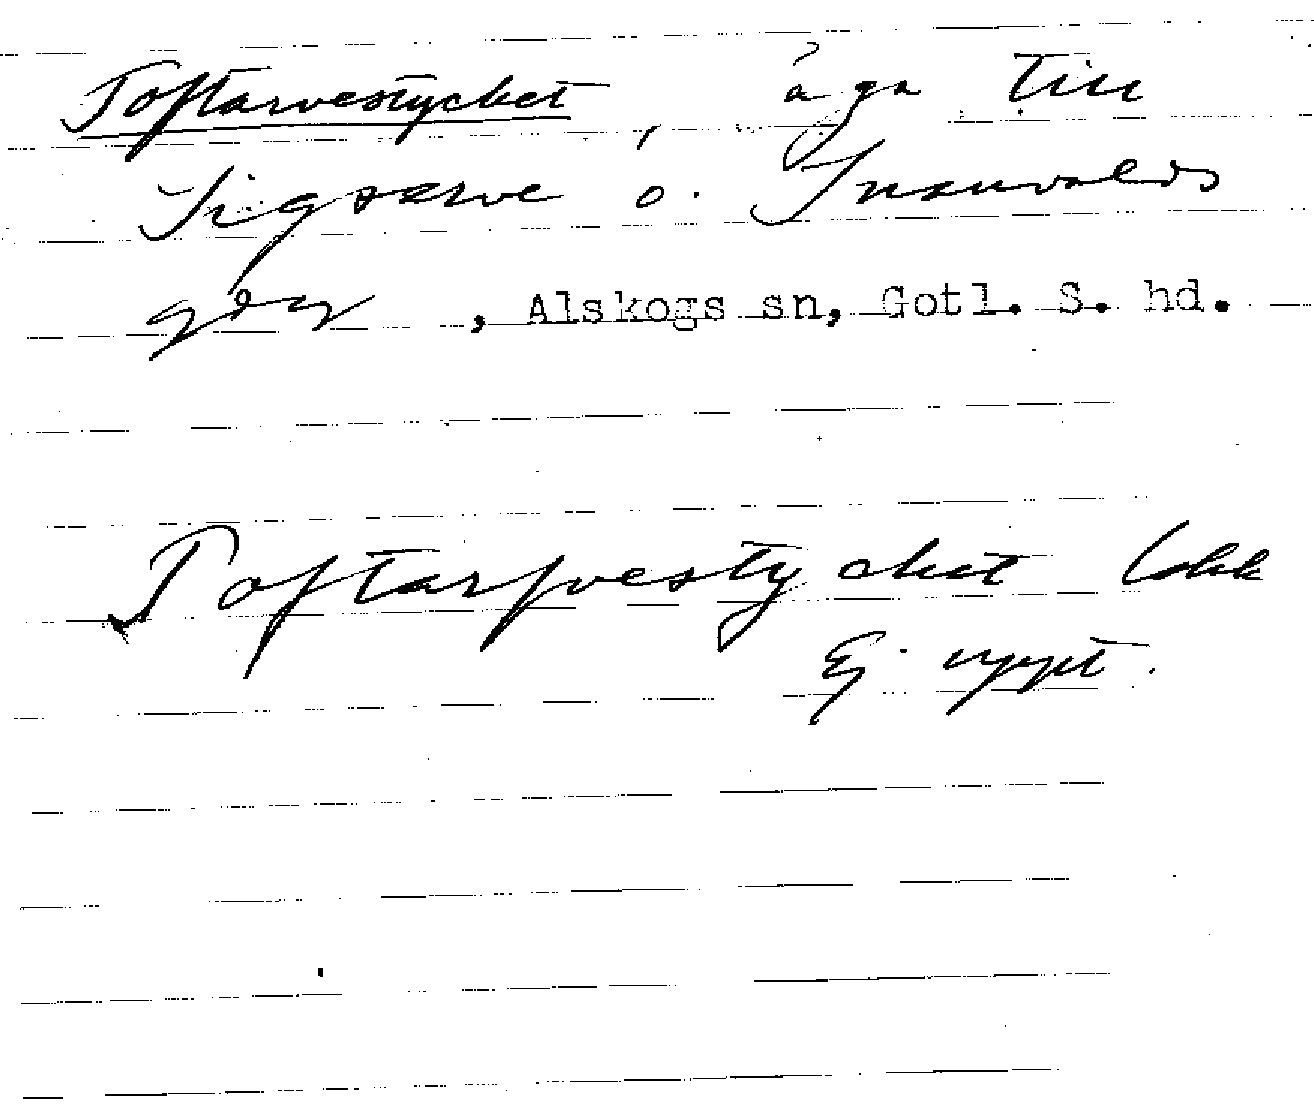 Toftarvestycket, äga till
Sigsarve o. Snauvalds
gdr, Alskogs sn, Gotl. S. hd.
Toftarfvestycket lskk
Ej uppt.